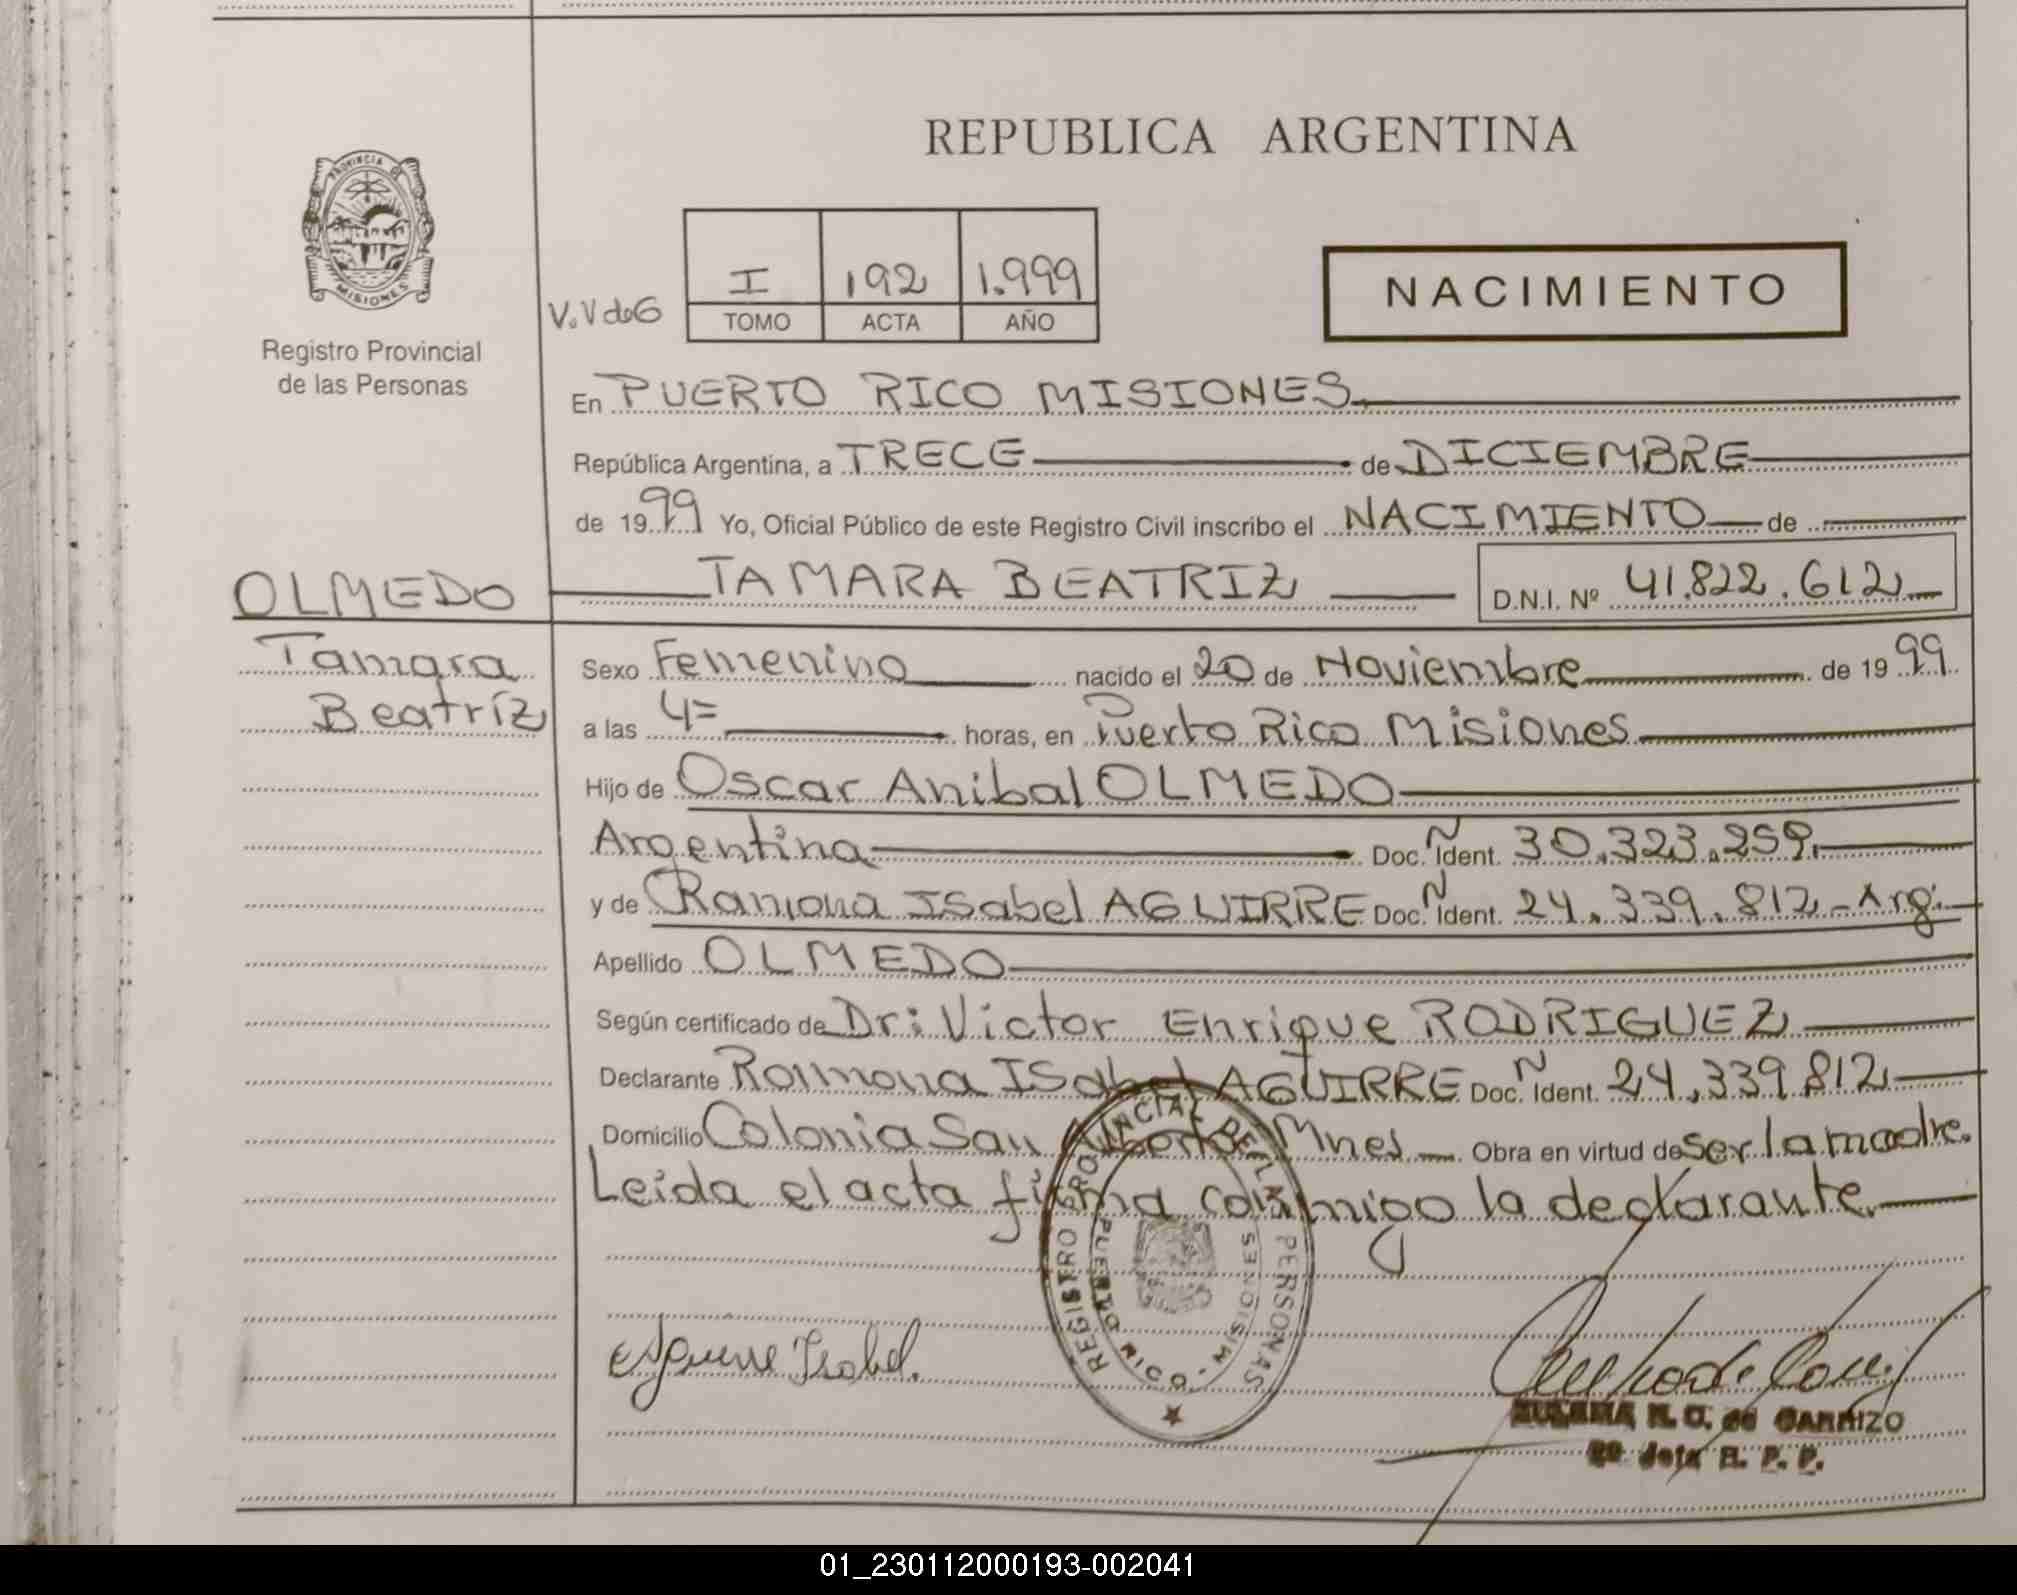 REPUBLICA ARGENTINA
PROVINCIA DE MISIONES
Registro Provincial
de las Personas
V.V de G
I 192 1.999
TOMO ACTA AÑO
NACIMIENTO
En PUERTO RICO MISIONES.
República Argentina, a TRECE de DICIEMBRE
de 1999 Yo, Oficial Público de este Registro Civil inscribo el NACIMIENTO de
OLMEDO
TAMARA BEATRIZ D.N.I. Nº 41.822.612
Tamara
Beatríz
Sexo Femenino nacido el 20 de Noviembre de 1999
a las 4= horas, en Puerto Rico Misiones
Hijo de Oscar Anibal OLMEDO
Argentina Doc. Ñ Ident. 30.323.259.
y de Ramona ISabel AGUIRRE Doc. Ñ Ident. 24.339.812 - Arg.
Apellido OLMEDO
Según certificado de Dr: Victor Enrique RODRIGUEZ
Declarante Ramona ISabel AGUIRRE Doc. Ñ Ident. 24.339.812
Domicilio Colonia San Alberto Mnes Obra en virtud de ser la madre.
Leida el acta firma conmigo la declarante.
REGISTRO PROVINCIAL DE LAS PERSONAS
PUERTO RICO - MISIONES
Aguirre Isabel.
N. O. de CARRIZO
Jefa R. P. P.
01_230112000193-002041